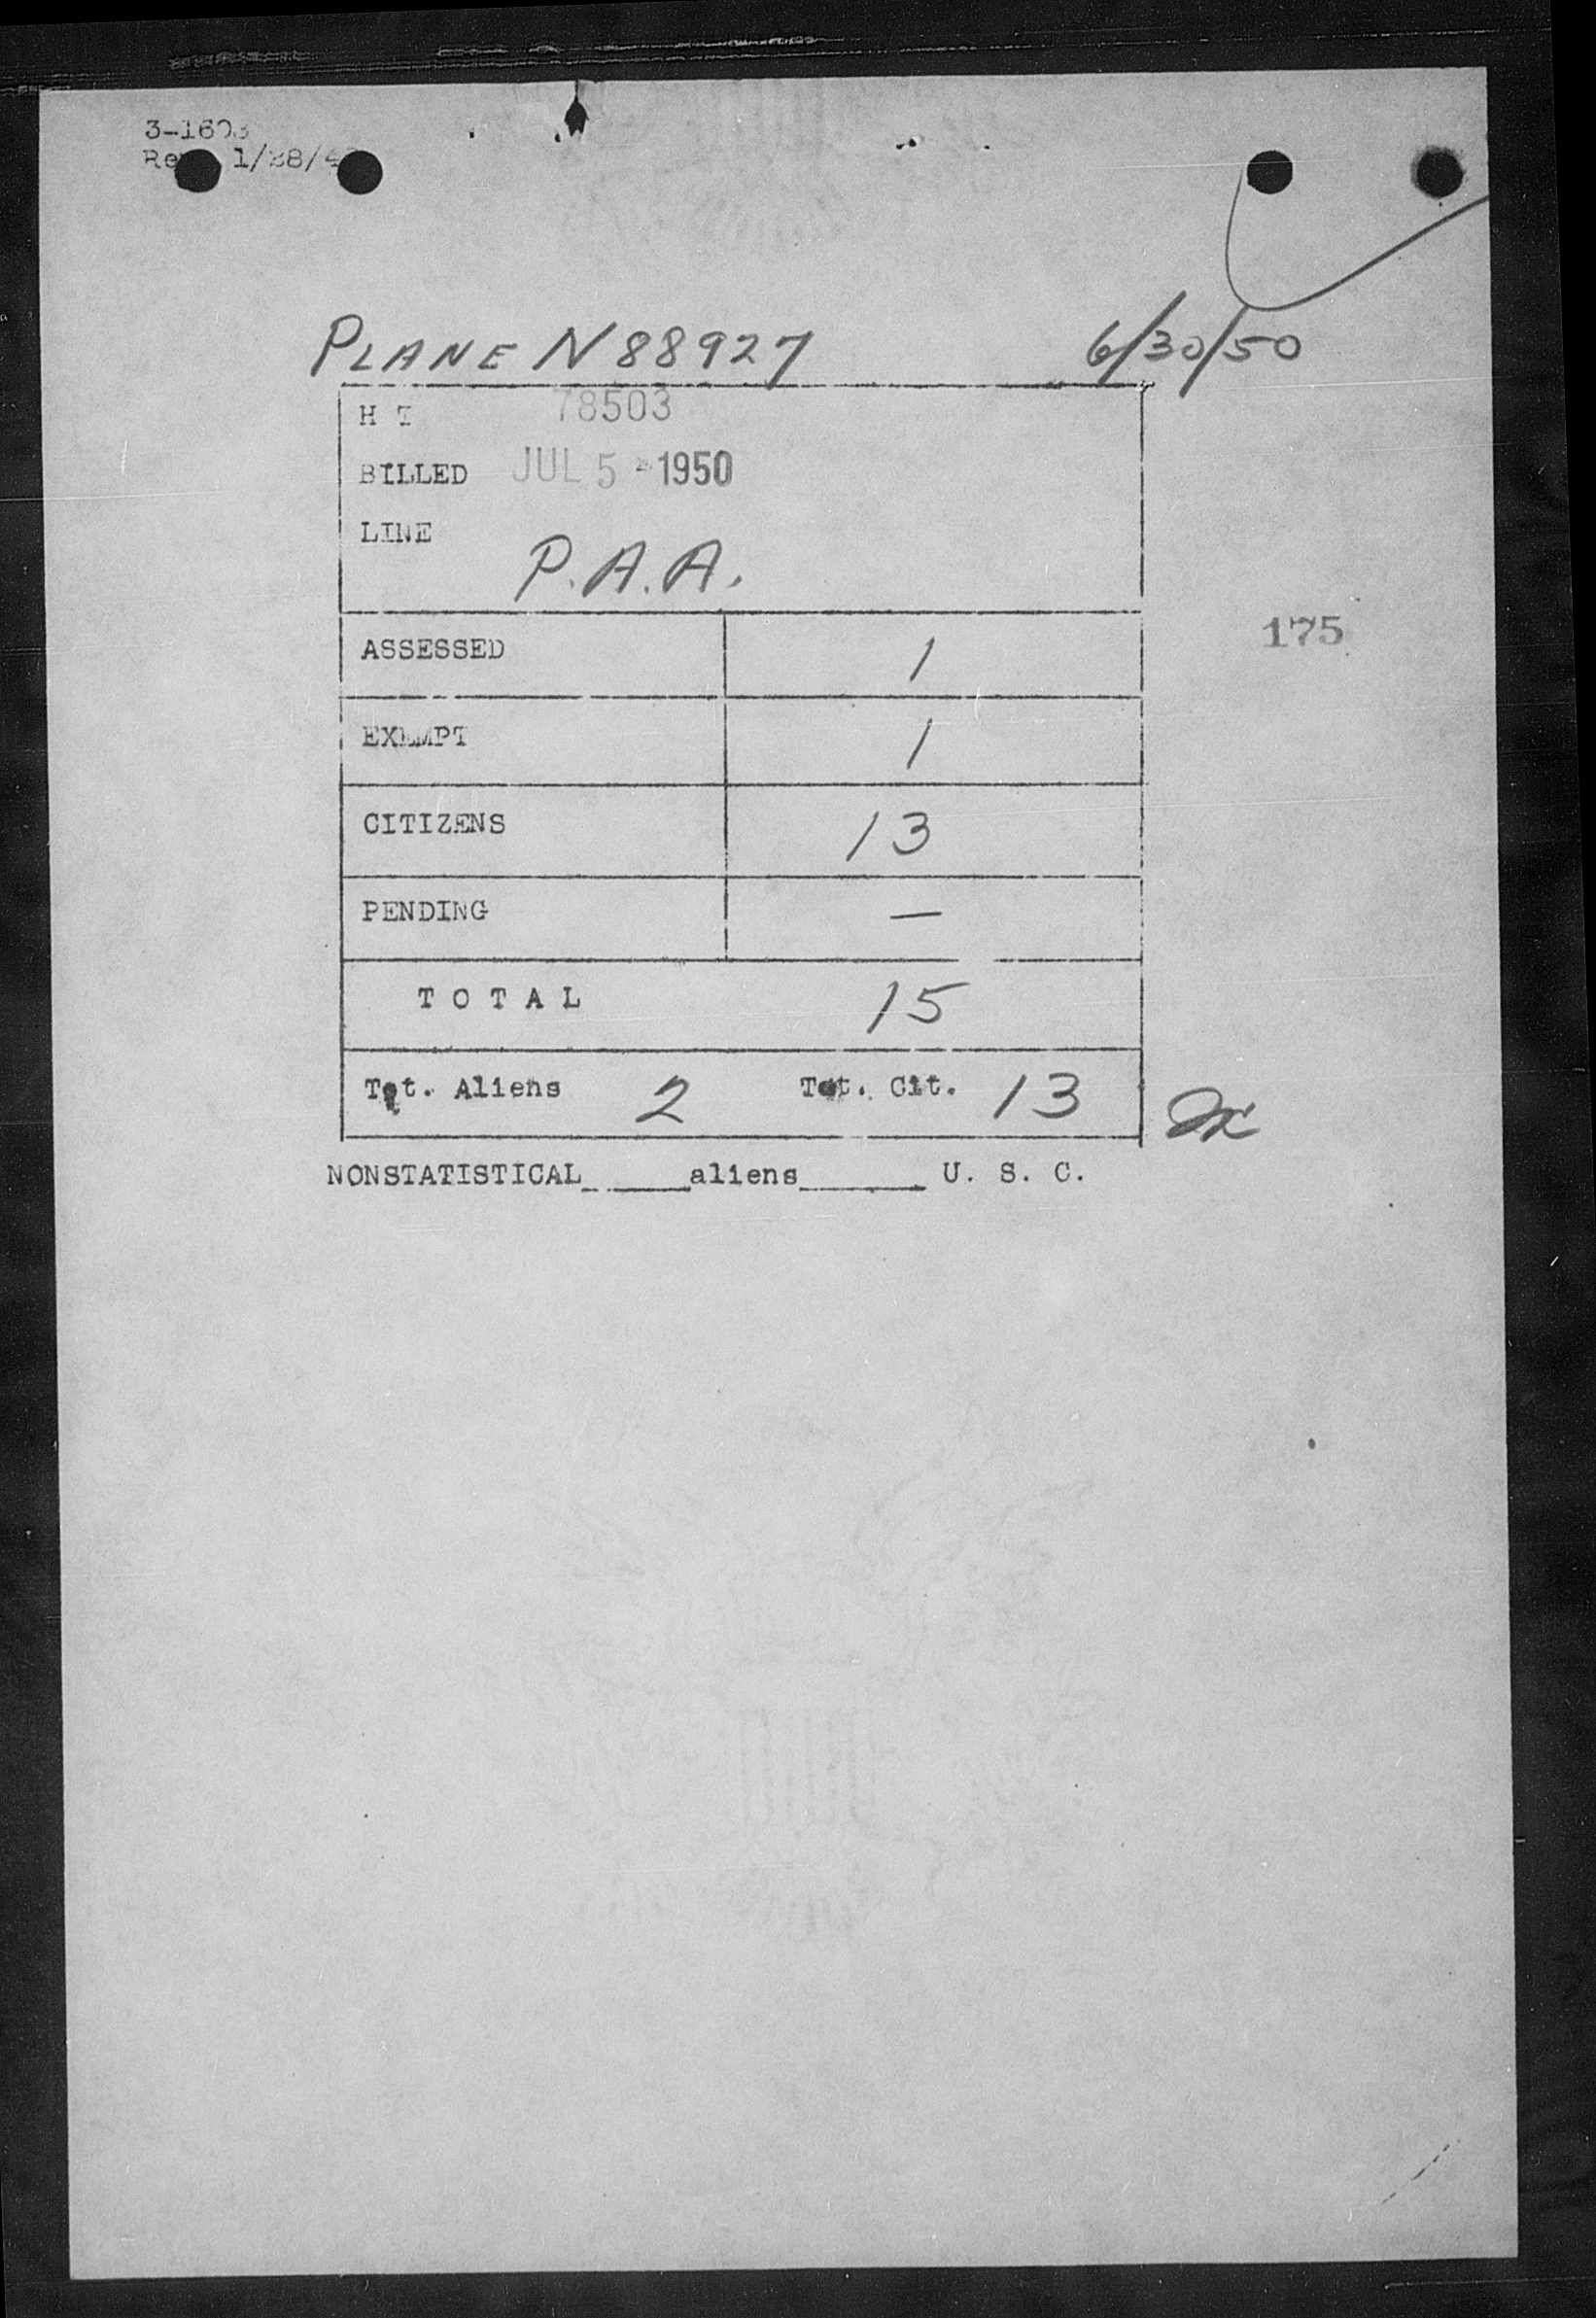 3-1603
Rev. 1/28/4
PLANE N88927 6/30/50
H T 78503
BILLED JUL 5 - 1950
LINE
P.A.A.
175
ASSESSED 1
EXEMPT 1
CITIZENS 13
PENDING —
T O T A L 15
Tot. Aliens 2 Tot. Cit. 13
NONSTATISTICAL______aliens______ U. S. C.